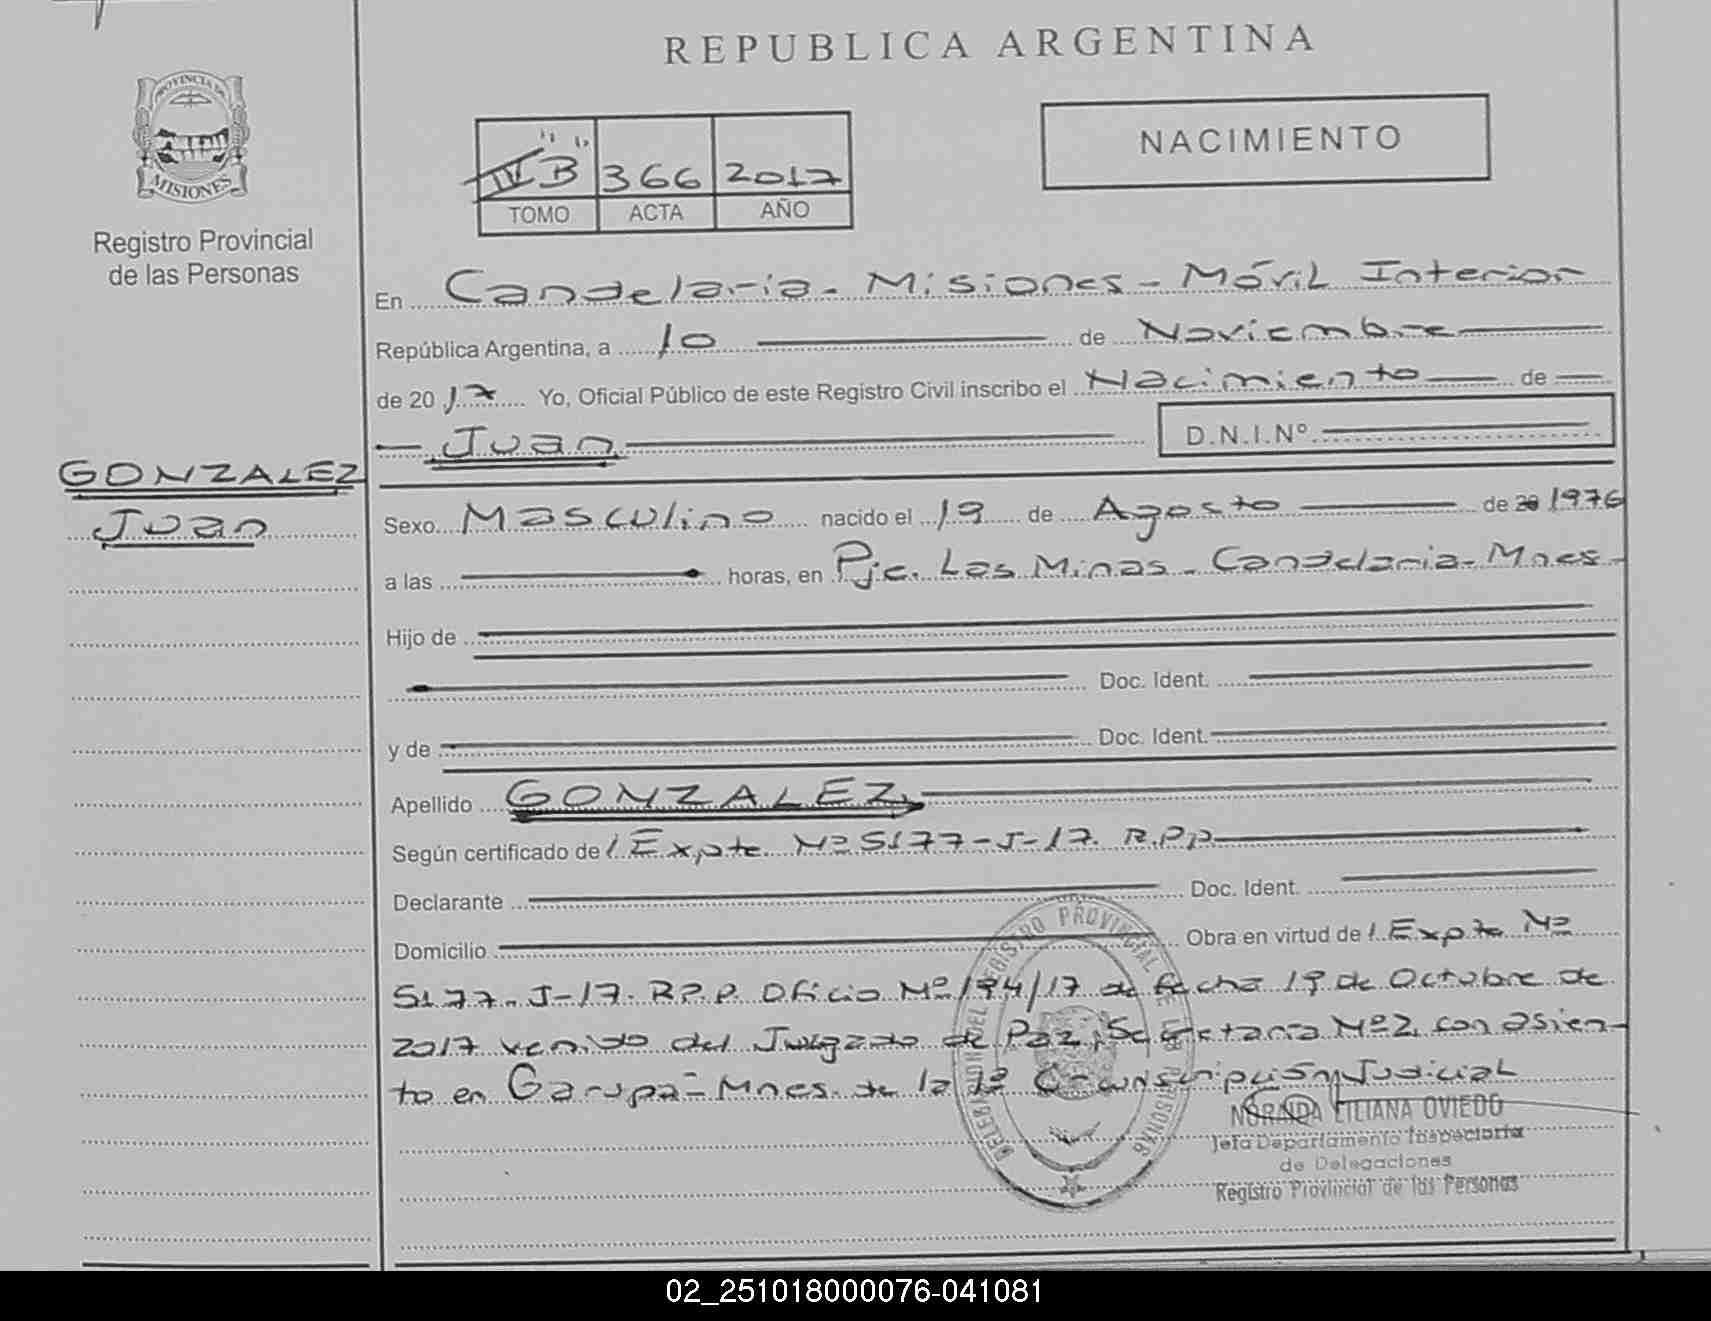 REPUBLICA ARGENTINA
PROVINCIA DE
MISIONES
Registro Provincial
de las Personas
IV "B" 366 2017
TOMO ACTA AÑO
NACIMIENTO
En Candelaria - Misiones - Móvil Interior
República Argentina, a 10 de Noviembre
de 2017 Yo, Oficial Público de este Registro Civil inscribo el Nacimiento de
Juan D.N.I.Nº
GONZALEZ
Juan
Sexo Masculino nacido el 19 de Agosto de 20 1976
a las horas, en Pje. Las Minas - Candelaria - Mnes -
Hijo de
Doc. Ident.
y de Doc. Ident.
Apellido GONZALEZ
Según certificado de / Expte. Nº 5177-J-17. R.P.P
Declarante Doc. Ident.
Domicilio Obra en virtud de / Expte Nº
5177-J-17. R.P.P. Oficio Nº 194/17 de fecha 19 de Octubre de
2017 venido del Juzgado de Paz, Secretaría Nº2, con asien-
to en Garupá - Mnes. de la 1º Circunscripción Judicial
DELEGACION DEL REGISTRO PROVINCIAL DE LAS PERSONAS
NORAIDA LILIANA OVIEDO
Jefa Departamento Inspectoría
de Delegaciones
Registro Provincial de las Personas
02_251018000076-041081